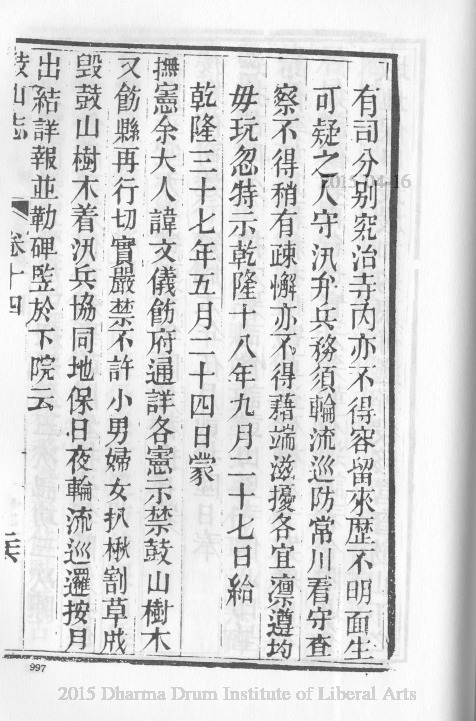 有司分别究治寺內亦不得容留來歷不明面生
可疑之人守汛弁兵務須輪流巡防常川看守查
察不得稍有疎懈亦不得藉端滋擾各宜凛遵均
毋玩忽特示乾隆十八年九月二十七日給
乾隆三十七年五月二十四日蒙
撫憲余大人諱文儀飭府通詳各憲示禁鼓山樹木
又飭縣再行切實嚴禁不許小男婦女扒楸割草戕
毁鼓山樹木着汛兵協同地保日夜輪流巡邏按月
出結詳報並勒碑竪於下院云
鼓山志 卷十四
997
2015-04-16
2015 Dharma Drum Institute of Liberal Arts